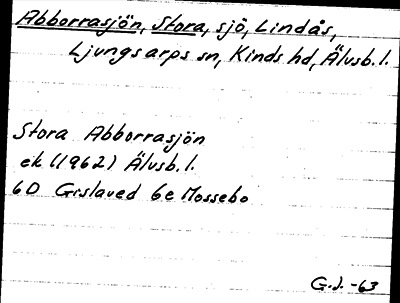 Abborrasjön, Stora, sjö, Lindås,
Ljungsarps sn, Kinds hd, Älvsb. l.
Stora Abborrasjön
ek (1962) Älvsb. l.
6D Gislaved 6e Mossebo
G.J. -63